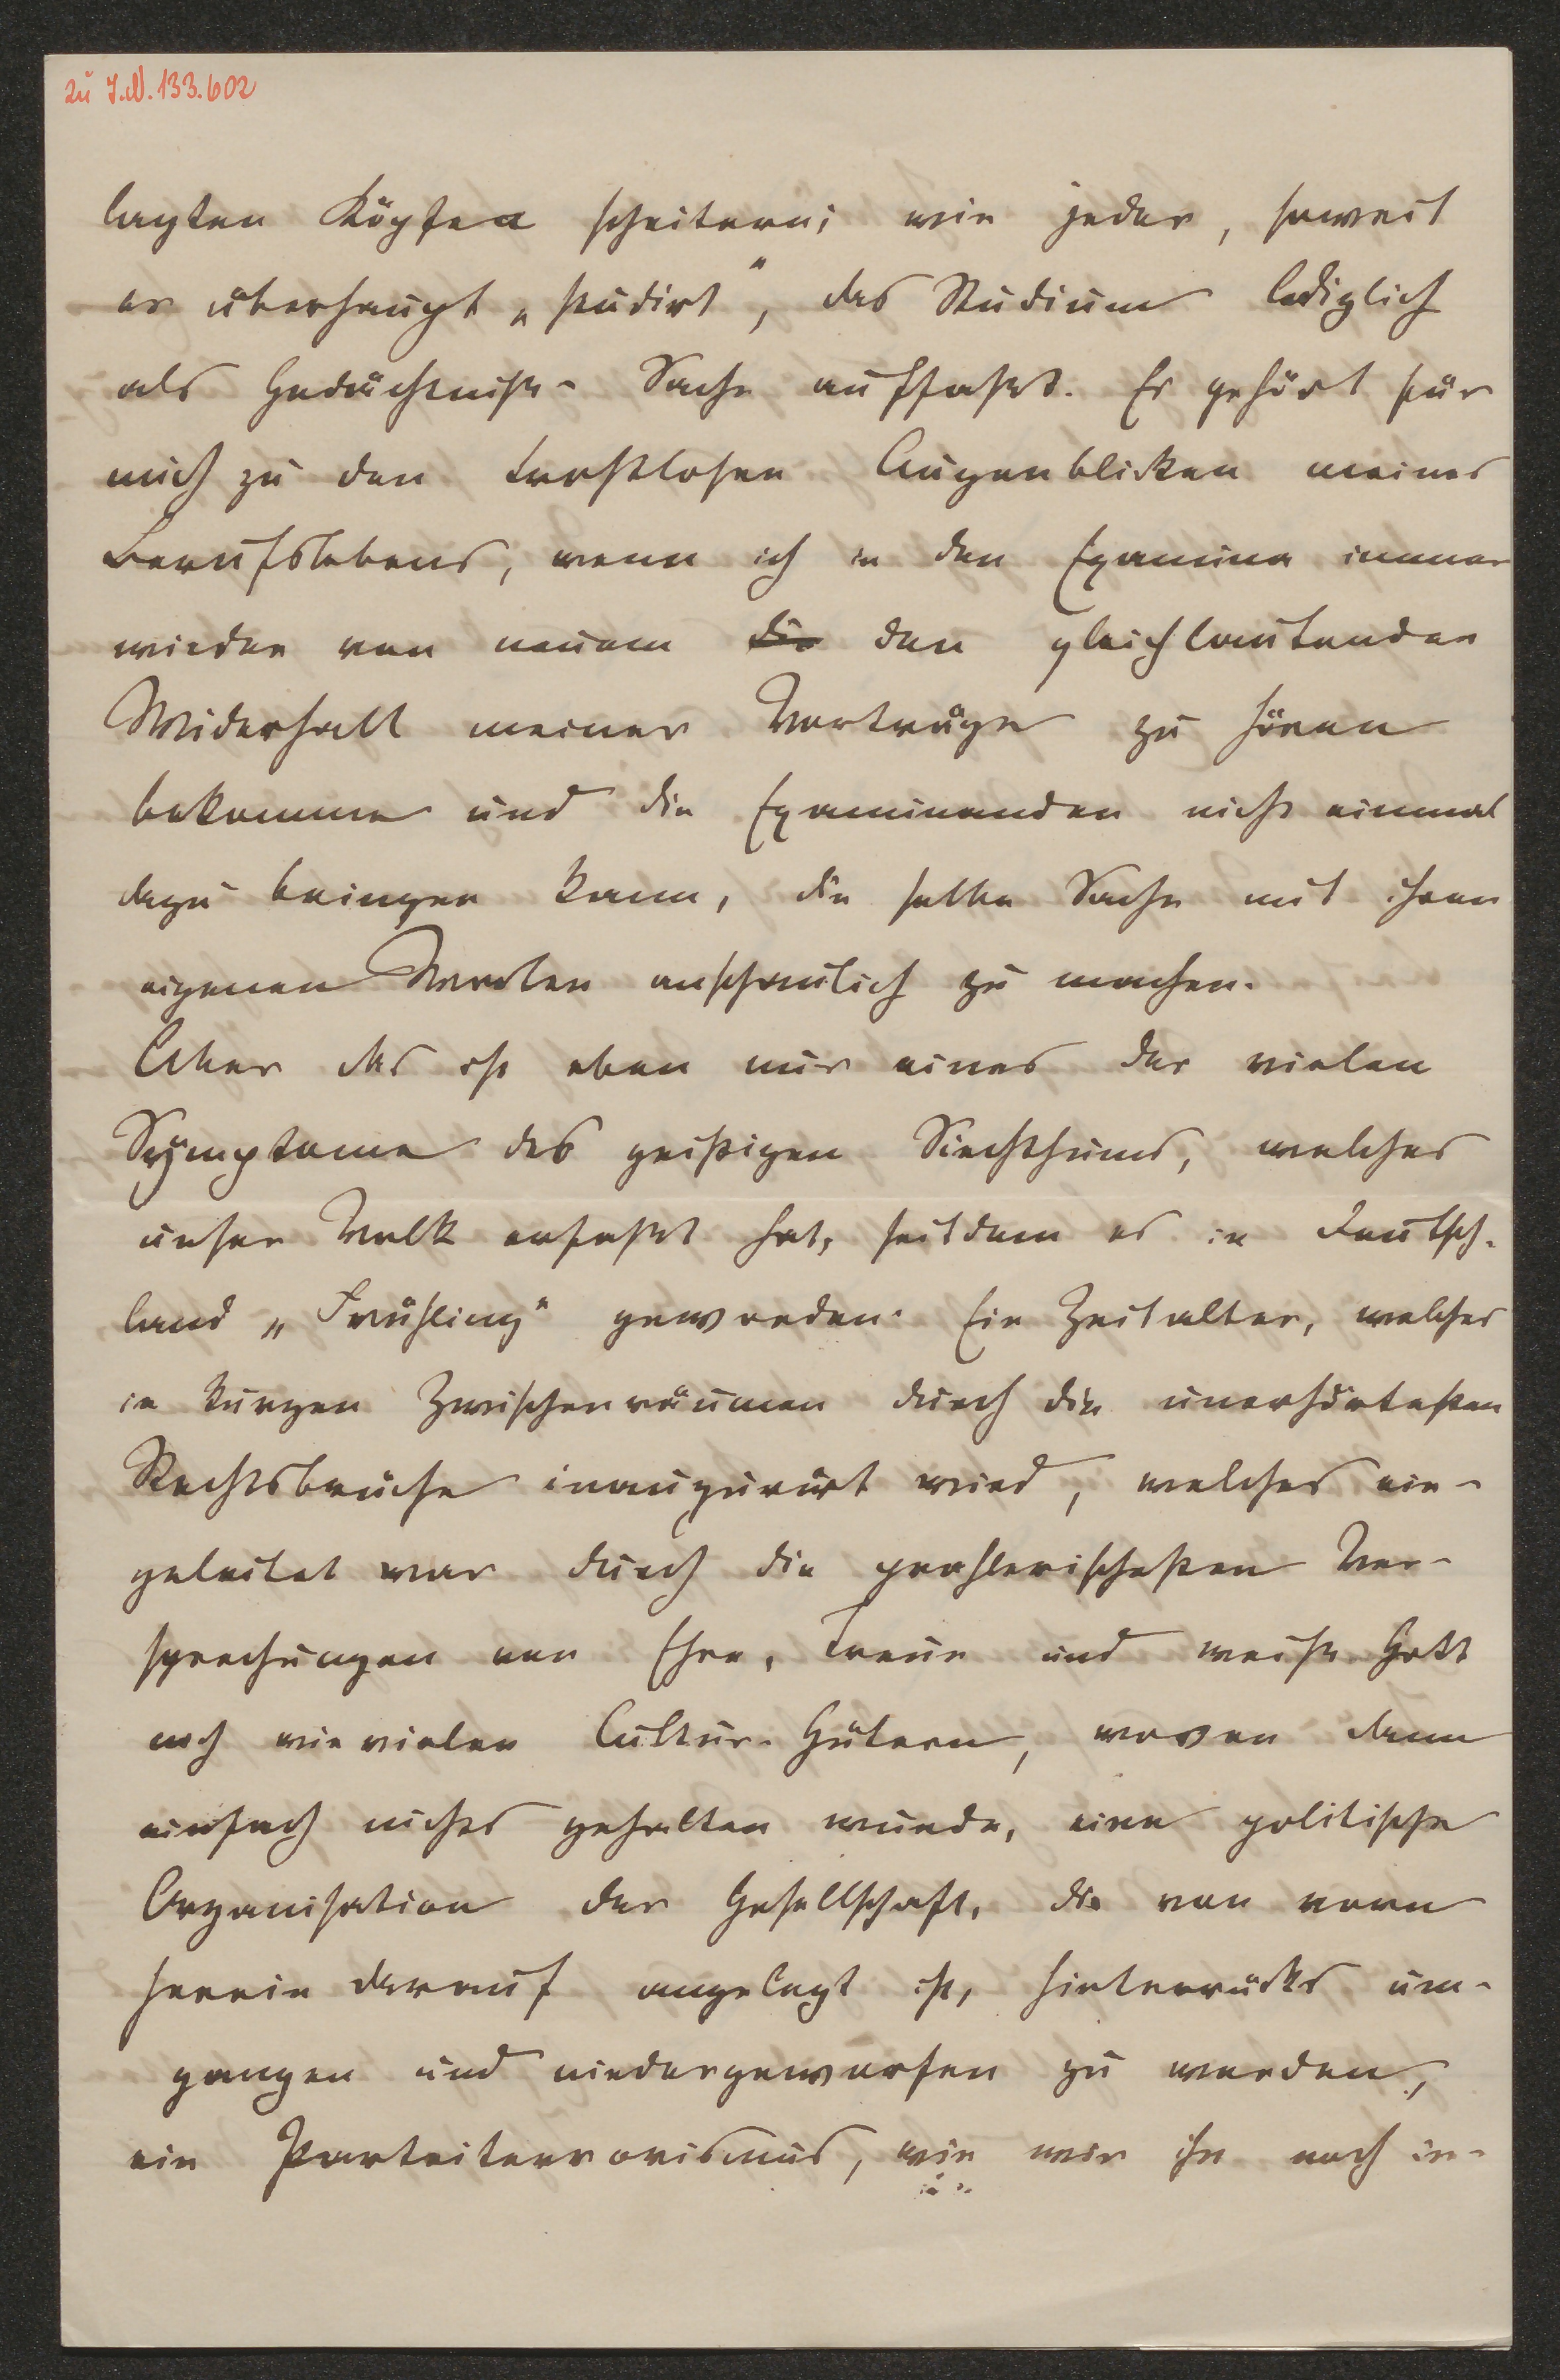 zu I.N. 133.602
lagten Köpfen scheitern; wie jeder, soweit
er überhaupt „studirt“, das Studium lediglich
als Gedächtniß-Sache auffaßt. Es gehört für
mich zu den trostlosen Augenblicken meines
Berufslebens, wenn ich in den Examina immer
wieder von neuem die den gleichlautenden
Widerhall meiner Vorträge zu hören
bekomme und die Examinanden nicht einmal
dazu bringen kann, die selbe Sache mit ihren
eigenen Worten anschaulich zu machen.
Aber das ist eben nur eines der vielen
Symptome des geistigen Siechthums, welches
unser Volk erfaßt hat, seitdem es in Deutsch-
land „Frühling“ geworden. Ein Zeitalter, welches
in kurzen Zwischenräumen durch die unerhörtesten
Rechtsbrüche inaugurirt wird, welches ein-
geleitet war durch die prahlerischesten Ver-
sprechungen von Ehre, Treue und weiß Gott
noch wie vielen Cultur-Gütern, wovon dann
einfach nichts gehalten wurde, eine politische
Organisation der Gesellschaft, die von vorn
herein darauf angelegt ist, hinterrücks um-
gangen und niedergeworfen zu werden,
ein Parteiterrorismus, wie wir ihn noch in-